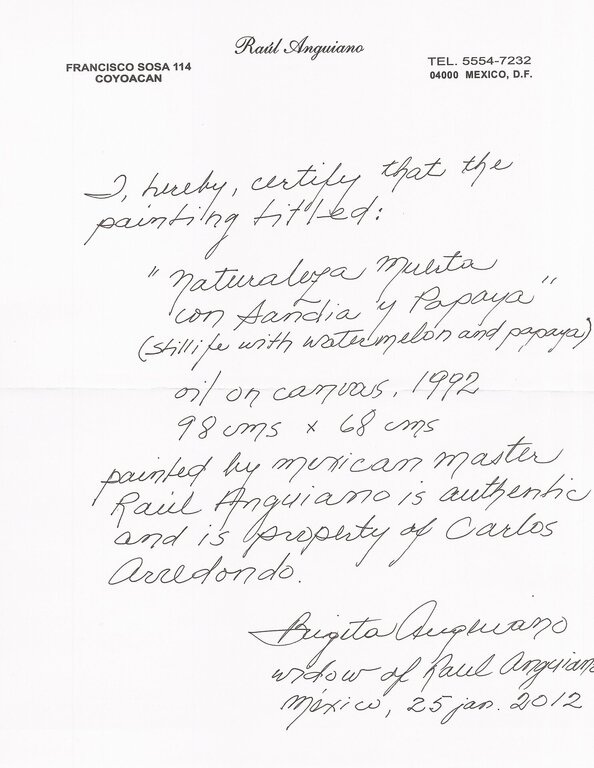 Raúl Anguiano
FRANCISCO SOSA 114
COYOACAN
TEL. 5554-7232
04000 MEXICO, D.F.
I, hereby, certify that the
painting titled:
"Naturaleza Muerta
con Sandia y Papaya"
(still life with watermelon and papaya)
oil on canvas, 1992
98 cms x 68 cms
painted by mexican master
Raúl Anguiano is authentic
and is property of Carlos
Arredondo.
Brigita Anguiano
widow of Raul Anguiano
México, 25 jan. 2012